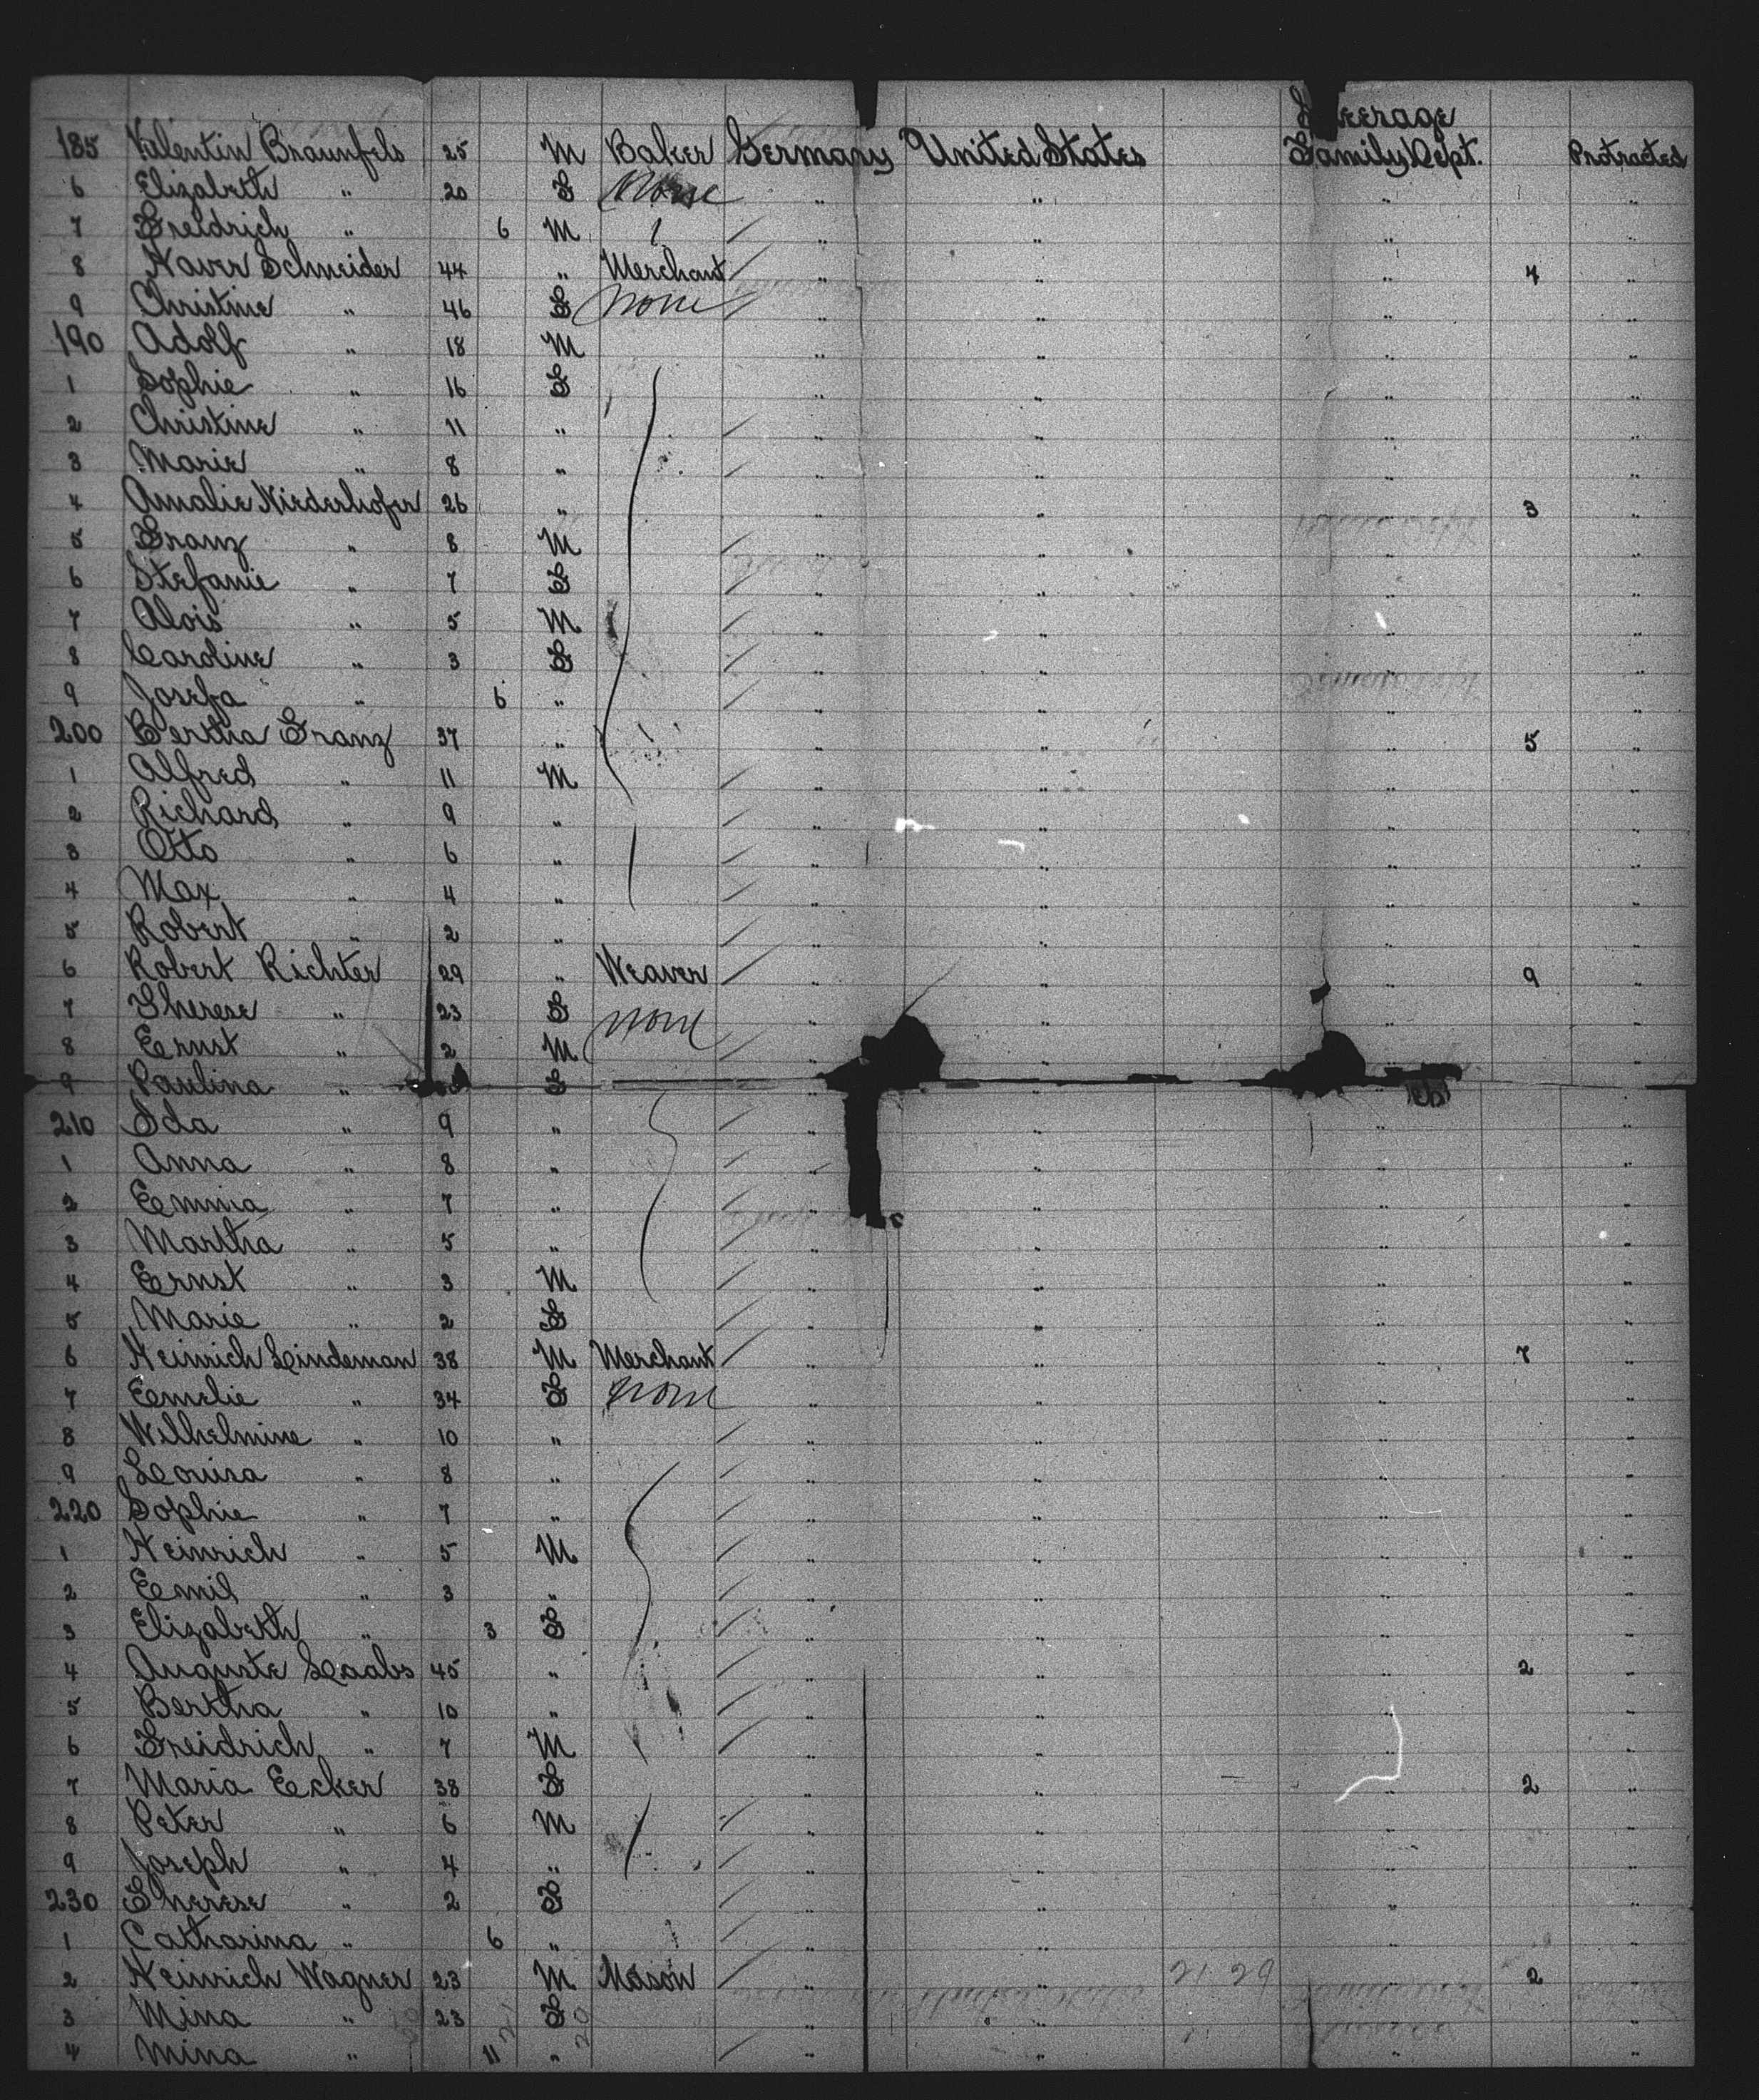 Steerage
185 Valentin Braunfels 25 M Baker Germany United States Family Dept. Protracted
6 Elizabeth " 20 F None " " " "
7 Freidrich " 6 M " " " "
8 Xaver Schneider 44 " Merchant " " " 4 "
9 Christine " 46 F None " " " "
190 Adolf " 18 M " " " "
1 Sophie " 16 F " " " "
2 Christine " 11 " " " " "
3 Marie " 8 " " " " "
4 Amalie Niederhofer 26 " " " " 3 "
5 Franz " 8 M " " " "
6 Stefanie " 7 F " " " "
7 Alois " 5 M " " " "
8 Caroline " 3 F " " " "
9 Josefa " 6 " " " " "
200 Bertha Franz 37 " " " " 5 "
1 Alfred " 11 M " " " "
2 Richard " 9 " " " " "
3 Otto " 6 " " " " "
4 Max " 4 " " " " "
5 Robert " 2 " " " " "
6 Robert Richter 29 " Weaver " " " 9 "
7 Therese " 23 F None " " " "
8 Ernst " 2 M " " " "
9 Paulina " F " " "
210 Ida " 9 " " " "
1 Anna " 8 " " " " "
2 Emma " 7 " " " " "
3 Martha " 5 " " " " "
4 Ernst " 3 M " " " "
5 Marie " 2 F " " " "
6 Heinrich Lindeman 38 M Merchant " " " 7 "
7 Emelie " 34 F None " " " "
8 Wilhelmine " 10 " " " " "
9 Louisa " 8 " " " " "
220 Sophie " 7 " " " " "
1 Heinrich " 5 M " " " "
2 Emil " 3 " " " " "
3 Elizabeth " 3 F " " " "
4 Auguste Laabs 45 " " " " 2 "
5 Bertha " 10 " " " " "
6 Freidrich " 7 M " " " "
7 Maria Ecker 38 F " " " 2 "
8 Peter " 6 M " " " "
9 Joseph " 4 " " " " "
230 Therese " 2 F " " " "
1 Catharina " 6 " " " " "
2 Heinrich Wagner 23 M Mason " " " 2 "
3 Mina " 23 F " " " "
4 Mina " 11 " " " " "